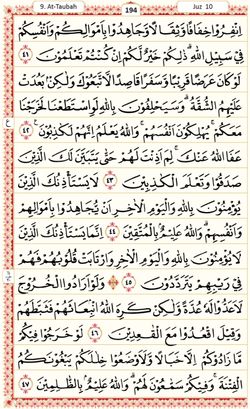 9. At-Taubah 194 Juz 10
اِنْفِرُوْا خِفَافًا وَّثِقَالًا وَّجَاهِدُوْا بِاَمْوَالِكُمْ وَاَنْفُسِكُمْ
فِيْ سَبِيْلِ اللّٰهِ ۗ ذٰلِكُمْ خَيْرٌ لَّكُمْ اِنْ كُنْتُمْ تَعْلَمُوْنَ ٤١
لَوْ كَانَ عَرَضًا قَرِيْبًا وَّسَفَرًا قَاصِدًا لَّاتَّبَعُوْكَ وَلٰكِنْۢ بَعُدَتْ
عَلَيْهِمُ الشُّقَّةُ ۗ وَسَيَحْلِفُوْنَ بِاللّٰهِ لَوِ اسْتَطَعْنَا لَخَرَجْنَا
مَعَكُمْ ۚ يُهْلِكُوْنَ اَنْفُسَهُمْ ۚ وَاللّٰهُ يَعْلَمُ اِنَّهُمْ لَكٰذِبُوْنَ ٤٢
عَفَا اللّٰهُ عَنْكَ ۚ لِمَ اَذِنْتَ لَهُمْ حَتّٰى يَتَبَيَّنَ لَكَ الَّذِيْنَ
صَدَقُوْا وَتَعْلَمَ الْكٰذِبِيْنَ ٤٣ لَا يَسْتَأْذِنُكَ الَّذِيْنَ
يُؤْمِنُوْنَ بِاللّٰهِ وَالْيَوْمِ الْاٰخِرِ اَنْ يُّجَاهِدُوْا بِاَمْوَالِهِمْ
وَاَنْفُسِهِمْ ۗ وَاللّٰهُ عَلِيْمٌۢ بِالْمُتَّقِيْنَ ٤٤ اِنَّمَا يَسْتَأْذِنُكَ الَّذِيْنَ
لَا يُؤْمِنُوْنَ بِاللّٰهِ وَالْيَوْمِ الْاٰخِرِ وَارْتَابَتْ قُلُوْبُهُمْ فَهُمْ
فِيْ رَيْبِهِمْ يَتَرَدَّدُوْنَ ٤٥ وَلَوْ اَرَادُوا الْخُرُوْجَ
لَاَعَدُّوْا لَهٗ عُدَّةً وَّلٰكِنْ كَرِهَ اللّٰهُ انْۢبِعَاثَهُمْ فَثَبَّطَهُمْ
وَقِيْلَ اقْعُدُوْا مَعَ الْقٰعِدِيْنَ ٤٦ لَوْ خَرَجُوْا فِيْكُمْ
مَّا زَادُوْكُمْ اِلَّا خَبَالًا وَّلَاَوْضَعُوْا خِلٰلَكُمْ يَبْغُوْنَكُمُ
الْفِتْنَةَ ۚ وَفِيْكُمْ سَمّٰعُوْنَ لَهُمْ ۗ وَاللّٰهُ عَلِيْمٌۢ بِالظّٰلِمِيْنَ ٤٧